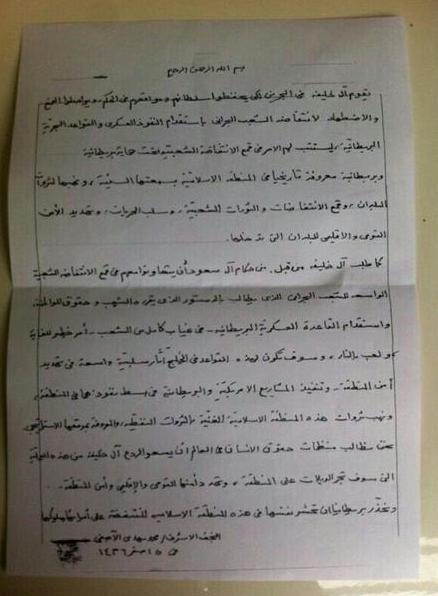 بسم الله الرحمن الرحيم
تقوم آل خليفة في البحرين لكي يحفظوا سلطانهم ومواقعهم في الحكم، ويواصلوا القمع
والاضطهاد لانتفاضة الشعب البحراني باستقدام النفوذ العسكري والقواعد البحرية
البريطانية، ليستتب لهم الأمر في قمع الانتفاضة الشعبية تحت حماية بريطانية
وبريطانية معروفة تاريخيا في المنطقة الاسلامية بسمعتها السيئة، ونهبها لثروات
البلدان، وقمع الانتفاضات والثورات الشعبية، وسلب الحريات، وتهديد الأمن
القومي والاقليمي للبلدان التي تدخلها.
كما طلب آل خليفة من قبل من حكام آل سعود أن يتعاونوا معهم في قمع الانتفاضة الشعبية
الواسعة للشعب البحراني الذي يطالب بالدستور الذي يقرره الشعب وحقوق المواطنة.
واستقدام القاعدة العسكرية البريطانية، في غياب كامل من الشعب، أمر خطير للغاية
ولعب بالنار، وسوف تكون لهذه القواعد في الخليج آثار سلبية واسعة في تهديد
أمن المنطقة، وتنفيذ المشاريع الامريكية والبريطانية في بسط نفوذهما في المنطقة،
ونهب ثروات هذه المنطقة الاسلامية الغنية بالثروات النفطية، والمعروفة بموقعها الاستراتيجي
نحن نطالب منظمات حقوق الانسان في العالم أن يسعوا لردع آل خليفة من هذه العملية
التي سوف تجر الويلات على المنطقة، وتهدد أمنها القومي والإقليمي وأمن المنطقة...
ونحذر بريطانيا أن تحشر نفسها في هذه المنطقة الاسلامية
النجف الاشرف / محمد مهدي الآصفي
في ١٥ صفر ١٤٣٦